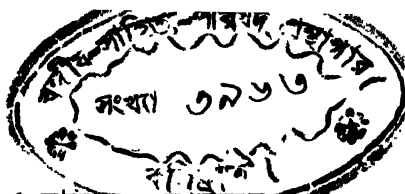 বঙ্গীয়-সাহিত্য-পরিষদ্ গ্রন্থাগার
সংখ্যা ৩৯৬৩